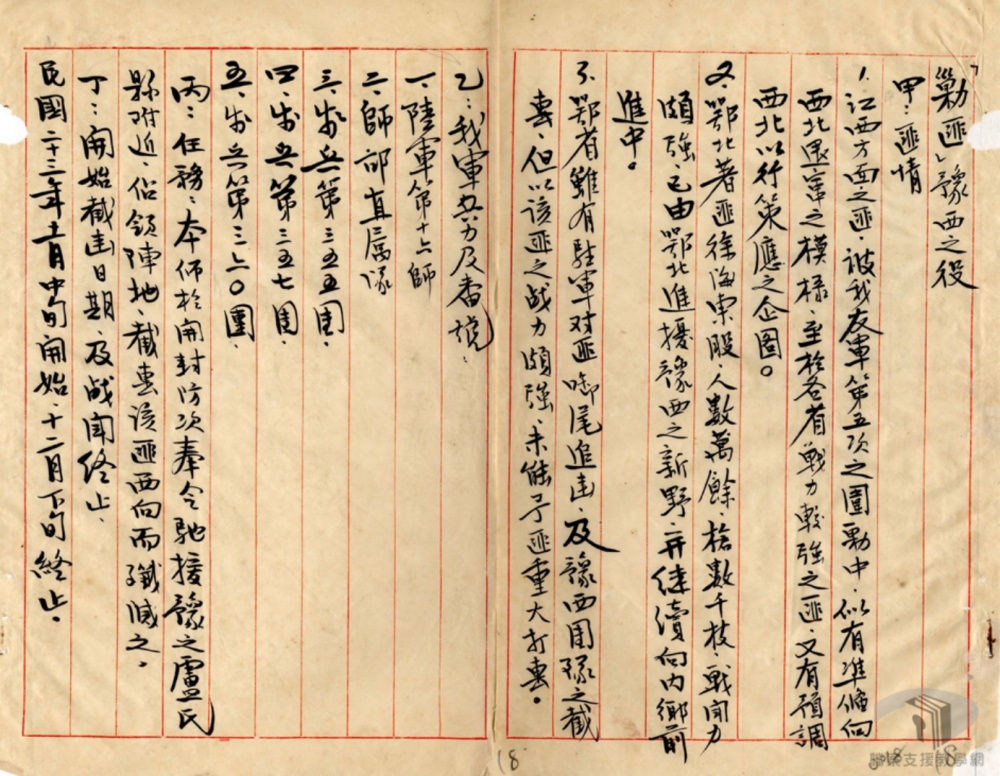 「剿匪」豫西之役
甲：匪情
1.江西方面之匪、被我友軍第五次之圍剿中、似有準備向
西北退竄之模樣、至於各省戰力較強之匪、又有預調
西北以行策應之企圖。
2.鄂北著匪徐海東股、人數萬餘、槍數千枝、戰鬥力
頗強、已由鄂北進擾豫西之新野、并继續向内鄉前
進中。
3.鄂省雖有駐軍对匪啣尾追击、及豫西团隊之截
击、但以該匪之战力頗強、未能予匪重大打击。
乙：我軍兵力及番號：
一、陸軍第十六師
二、師部直屬隊
三、步兵第三五五團、
四、步兵第三五七團、
五、步兵第三六〇團、
丙：任務：本師於開封防次奉令馳援豫之盧氏
縣附近、佔領陣地、截击該匪西向而殲滅之。
丁：開始截击日期、及战鬥終止、
民國二十三年十一月中旬開始、十二月下旬終止。
18